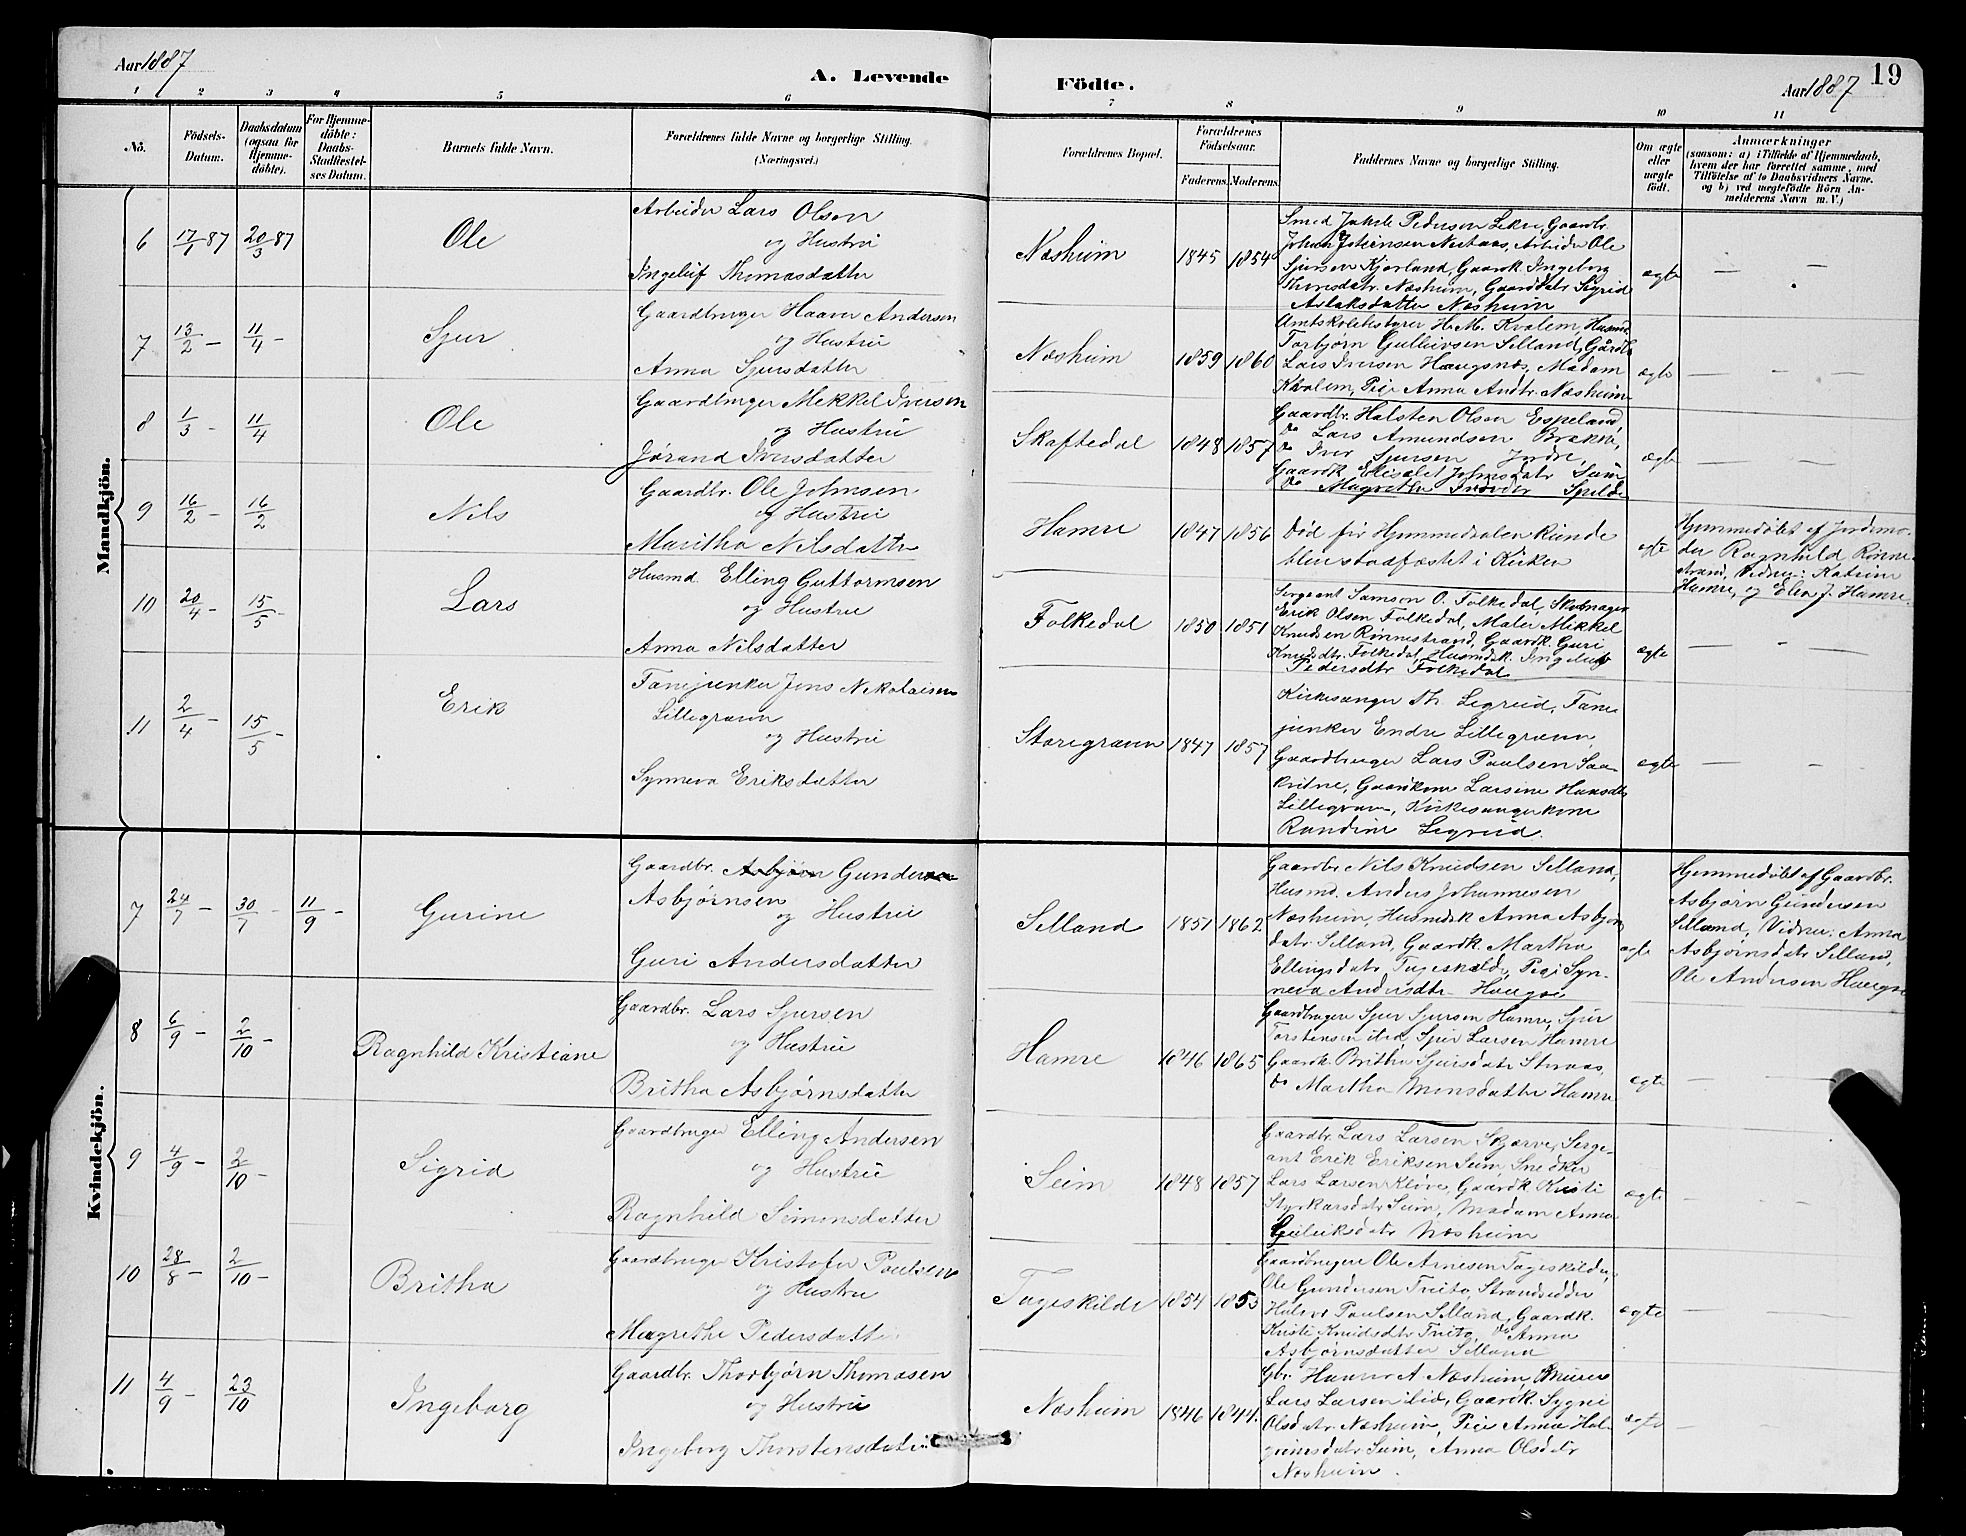 Aar 1887
A. Levende Födte.
Aar 1887
19
1 2 3 4 5 6 7 8 9 10 11
Nō.
Födsels-
Datum.
Daabsdatum
(ogsaa for
Hjemme-
döbte).
For Hjemme-
döbte:
Daabs-
Stadfæstel-
ses Datum.
Barnets fulde Navn.
Forældrenes fulde Navne og borgerlige Stilling.
(Næringsvei.)
Forældrenes Bopæl.
Forældrenes
Födselsaar.
Faderens. Moderens.
Faddernes Navne og borgerlige Stilling.
Om ægte
eller
uægte
födt.
Anmærkninger
(saasom: a) i Tilfælde af Hjemmedaab,
hvem der har forrettet samme, med
Tilföielse af to Daabsvidners Navne.
og b) ved uægtefödte Börn An-
melderens Navn m. V.)
Mandkjön.
6 17/1 87 20/3 87
Ole
Arbeider Lars Olsen
og Hustru
Ingeleif Thomasdatter
Næsheim 1845 1854
Smed Jakob Pedersen Lekve, Gaardbr.
Johan Nestaas, Arbeider Ole
Sjursen Kjerland, Gaardk. Ingeborg
Thorsdatr. Næsheim, Gaarddatr Sigrid
Aslaksdatter Næsheim
ægte — —
7 13/2 — 11/4 —
Sjur
Gaardbruger Haaver Andersen
og Hustru
Anna Sjursdatter
Næsheim 1859 1860
Amtskolebestyrer H. M. Kvalem, Husmd.
Torbjørn Gulleivsen Selland, Gårdb.
Lars Iversen Haugsnæs, Madam
Kvalem, Pige Anna Andtr. Næsheim
ægte — — —
8 1/3 - 11/4
Ole
Gaardbruger Mekkel Iversen
og Hustru
Jørand Iversdatter
Skaftedal 1848 1857
Gaardbr. Halsten Olsen Espeland,
Do Lars Amundsen Brakve,
Do Iver Sjursen Indre,
Gaardk Elisabet Johnsdatr Seim
Do Magrethe Spilde
ægte — — —
9 16/2 - 16/2
Nils
Gaardbr. Ole Johnsen
og Hustru
Maritha Nilsdatter
Hamre 1847 1856
Død før Hjemmedaaben kunde
blive stadfæstet i Kirken
ægte
Hjemmedøbt af Jordemo-
der Ragnhild Rønne-
strand, Vidner: Katrine
Hamre, og Elen J. Hamre.
10 20/4 - 15/5 -
Lars
Husmd. Elling Guttormsen
og Hustru
Anna Nilsdatter
Folkedal 1850 1851
Sergeant Samson O. Folkedal, Skomager
Erik Olsen Folkedal, Maler Mikkel
Knudsen Rønnestrand, Gaardk. Guri
Knudsdtr. Folkedal, Husmdsk. Ingeleiv
Pedersdtr Folkedal
ægte — - —
11 2/4 - 15/5 -
Erik
Fanejunker Jens Nikolaisen
Lillegraven
og Hustru
Synneva Eriksdatter
Storegraven 1847 1857
Kirkesanger Th. Legreid, Fane-
junker Endre Lillegraven,
Gaardbruger Lars Paulsen Saa-
kvitne, Gaardkone Larsine Hansdtr
Lillegraven, Kirkesangerkone
Randine Legreid.
ægte — —
Kvindekjön.
7 24/7 — 30/7 — 11/9 —
Gurine
Gaardbr. Asbjørn Gundersen
Asbjørnsen
og Hustru
Guri Andersdatter
Selland 1851 1862
Gaardbr Nils Knudsen Selland,
Husmd. Anders Johannesen
Næsheim, Husmdsk Anna Asbjørns-
datr. Selland, Gaardk. Martha
Ellingsdatr Tageskilde, Pige Syn-
neva Andersdtr. Haugse
ægte
Hjemmedøbt af Gaardbr.
Asbjørn Gundersen
Selland, Vidner: Anna
Asbjørnsdatr Selland,
Ole Andersen Haugse
8 6/9 — 2/10 —
Ragnhild Kristiane
Gaardbr. Lars Sjursen
og Hustru
Britha Asbjørnsdatter
Hamre 1846 1865
Gaardbrugere Sjur Sjursen Hamre, Sjur
Torstensen ibid, Sjur Larsen Hamre
Gaardk Britha Sjursdatr
Do Martha Monsdatter Hamre
ægte — —
9 4/9 — 2/10 —
Sigrid
Gaardbruger Elling Andersen
og Hustru
Ragnhild Simonsdatter
Seim 1848 1857
Gaardbr. Lars Larsen Skjerve, Serge-
ant Erik Eriksen Seim, Snedker
Lars Larsen Kløve, Gaardk. Kristi
Styrkarsdatr Seim, Madam Anna
Næsheim
ægte — —
10 28/8 — 2/10 —
Britha
Gaardbruger Kristofer Paulsen
og Hustru
Magrethe Pedersdatter
Tageskilde 1854 1853
Gaardbrugere Ole Arnesen Tageskilde,
Ole Gundersen Tveito, Strandsidder
Halvor Paulsen Selland, Gaardk.
Kristi Knudsdtr Tveito, Do Anna
Asbjørnsdatter Selland
ægte — —
11 4/9 — 23/10
Ingeborg
Gaardbr. Thorbjørn Thomasen
og Hustru
Ingeborg Thorstensdatr
Næsheim 1846 1844.
Gbr. Haaver A Næsheim, Murer
Lars Larsen ibid, Gaardk. Sygni
Olsdatr Næsheim, Pige Anna Hal-
Seim, Anna Olsdatr
Næsheim.
ægte — —